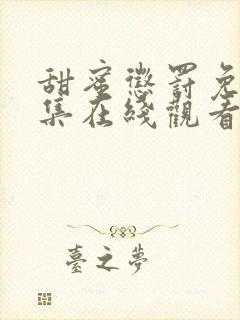 甜蜜懲罰免
集在綫觀看
臺之夢